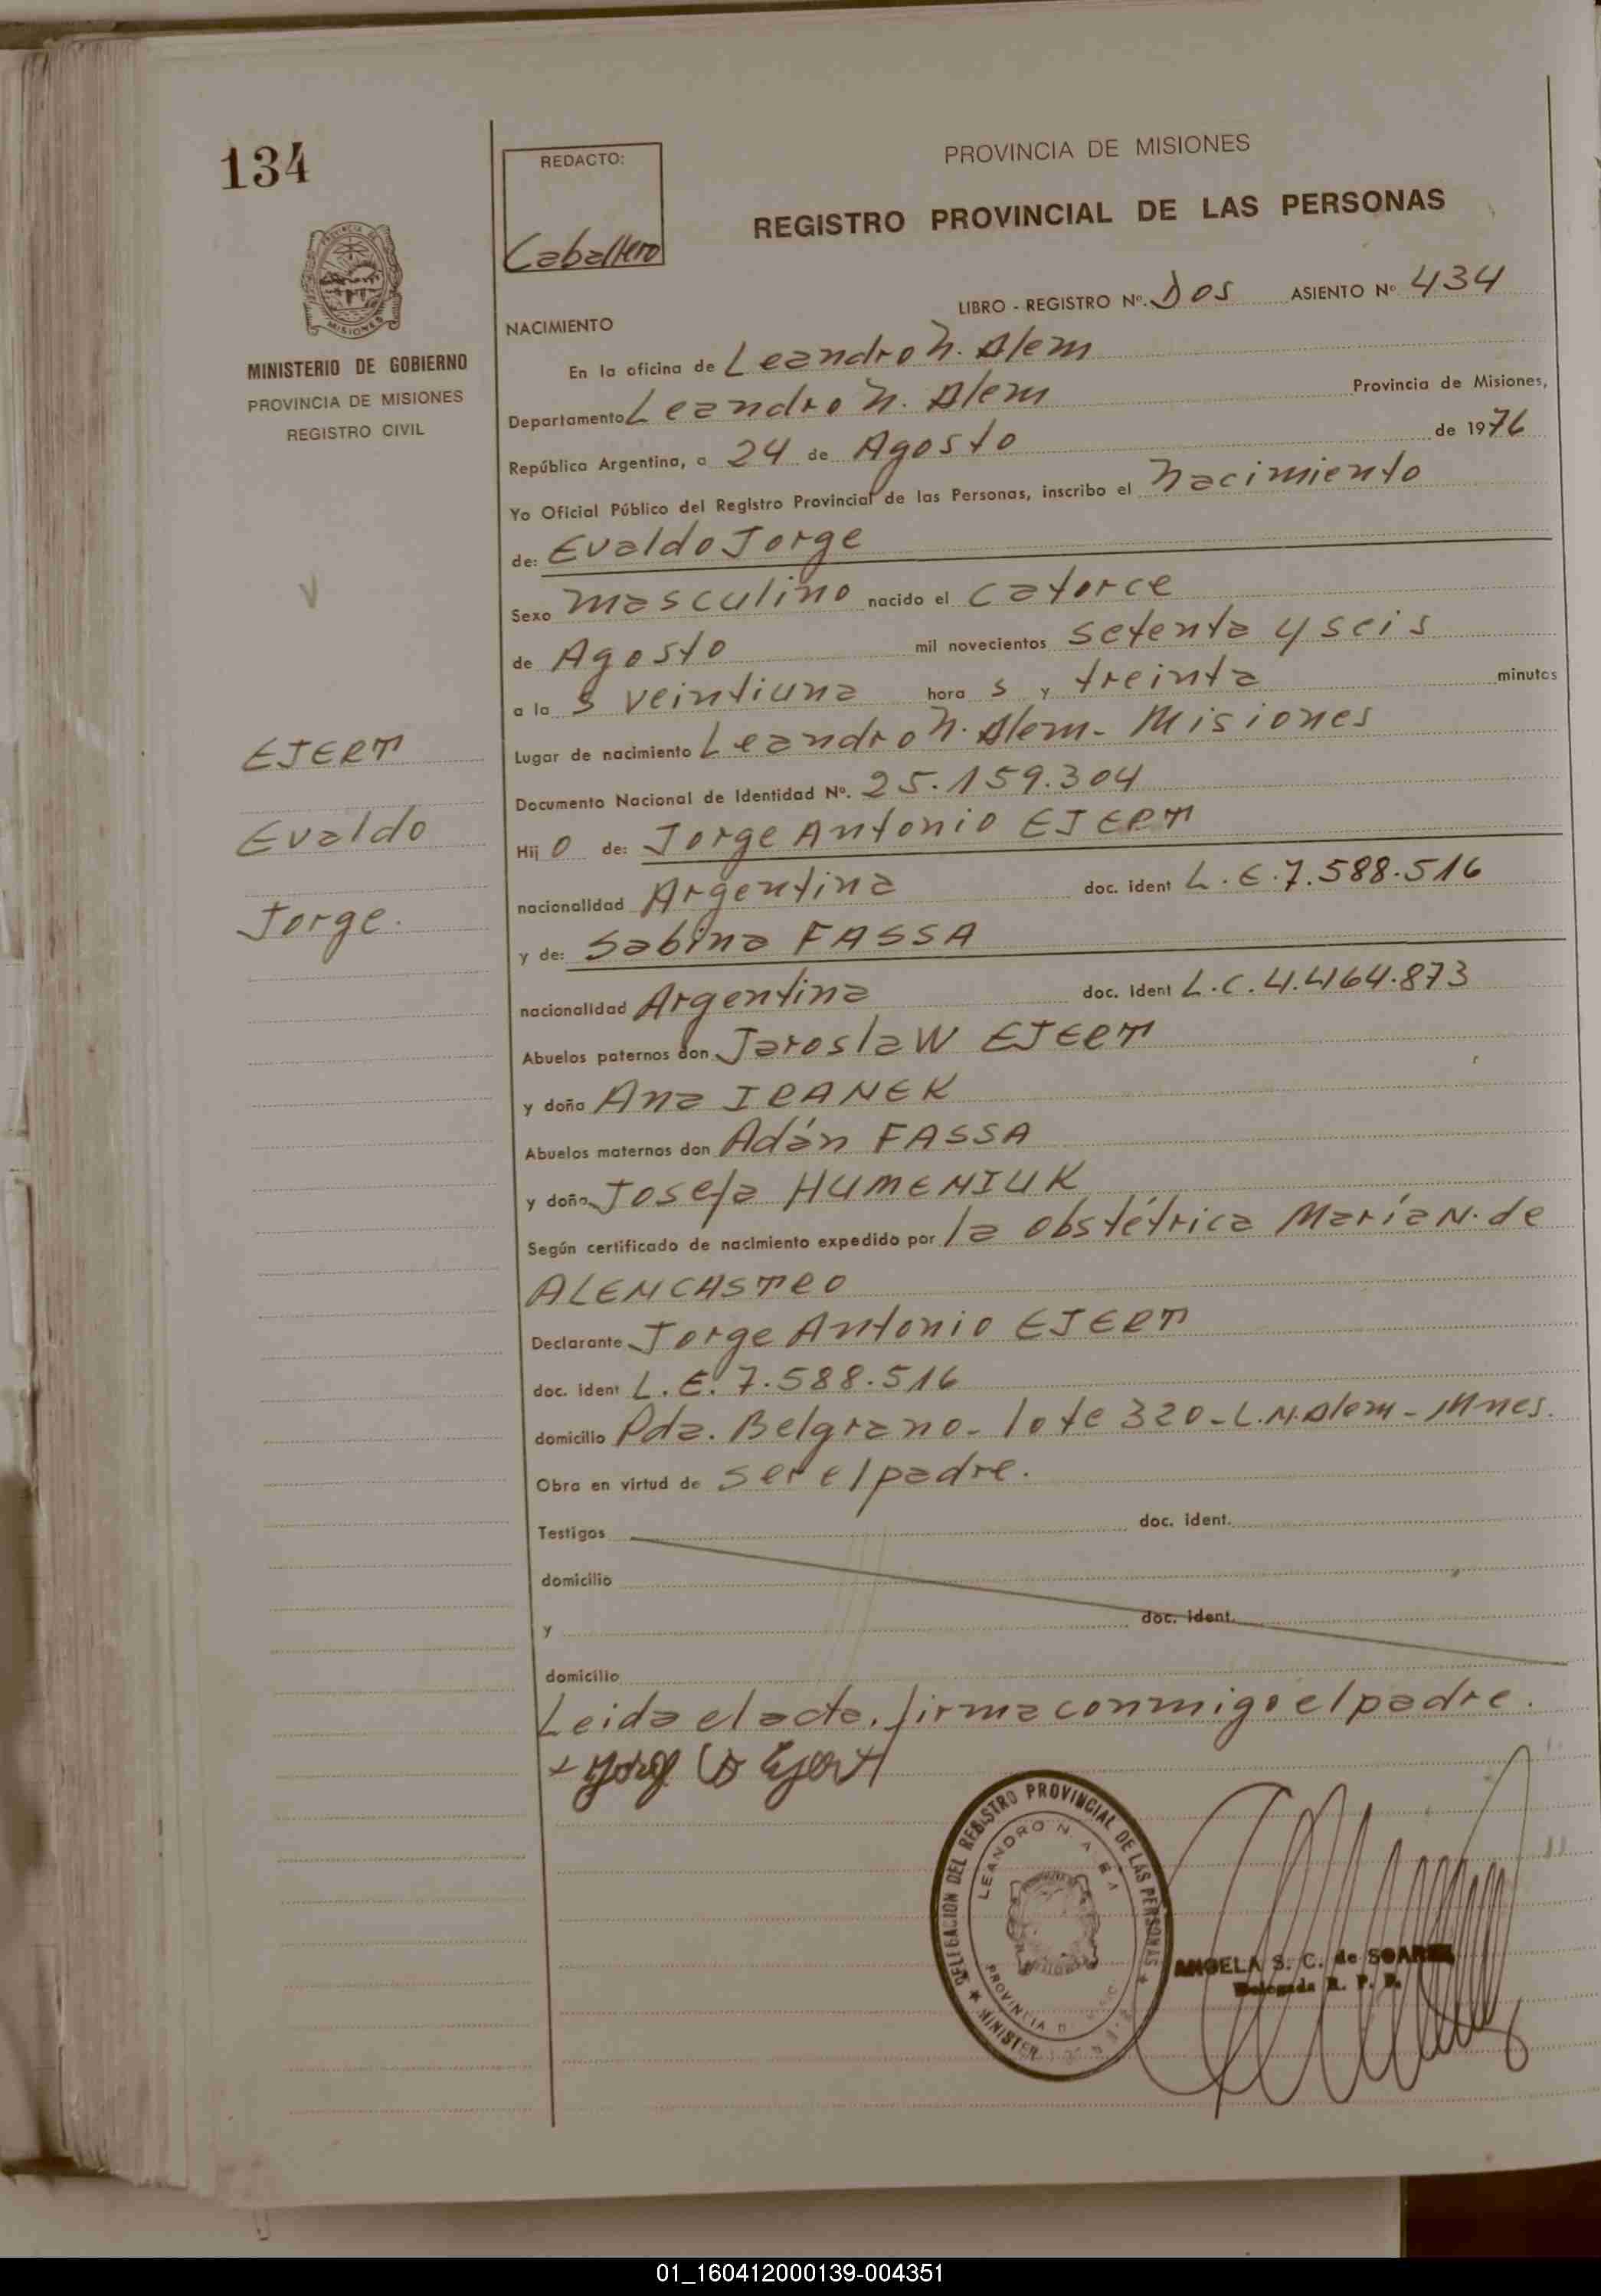 134
REDACTO:
Caballero
PROVINCIA DE MISIONES
REGISTRO PROVINCIAL DE LAS PERSONAS
LIBRO - REGISTRO Nº. Dos ASIENTO Nº 434
PROVINCIA DE
MISIONES
MINISTERIO DE GOBIERNO
PROVINCIA DE MISIONES
REGISTRO CIVIL
NACIMIENTO
En la oficina de Leandro N. Alem
Departamento Leandro N. Alem Provincia de Misiones,
República Argentina, a 24 de Agosto de 1976
Yo Oficial Público del Registro Provincial de las Personas, inscribo el Nacimiento
de: Evaldo Jorge
Sexo masculino nacido el catorce
de Agosto mil novecientos setenta y seis
a la s veintiuna hora s y treinta minutos
Lugar de nacimiento Leandro N. Alem - Misiones
Documento Nacional de Identidad Nº. 25.159.304
EJERT
Evaldo
Jorge.
Hij o de: Jorge Antonio EJERT
nacionalidad Argentina doc. ident L.E. 7.588.516
y de: Sabina FASSA
nacionalidad Argentina doc. ident L.C. 4.464.873
Abuelos paternos don Jaroslaw EJERT
y doña Ana IRANEK
Abuelos maternos don Adán FASSA
y doña Josefa HUMENIUK
Según certificado de nacimiento expedido por la obstétrica María N. de
ALENCASTRO
Declarante Jorge Antonio EJERT
doc. ident L.E. 7.588.516
domicilio Pda. Belgrano - lote 320 - L.N. Alem - Mnes.
Obra en virtud de ser el padre.
Testigos doc. ident.
domicilio
y doc. ident.
domicilio
Leida el acta, firma conmigo el padre.
Ejert
DELEGACION DEL REGISTRO PROVINCIAL DE LAS PERSONAS
LEANDRO N.
PROVINCIA
ANGELA S. C. de SOAREZ
Delegada R. P. P.
01_160412000139-004351